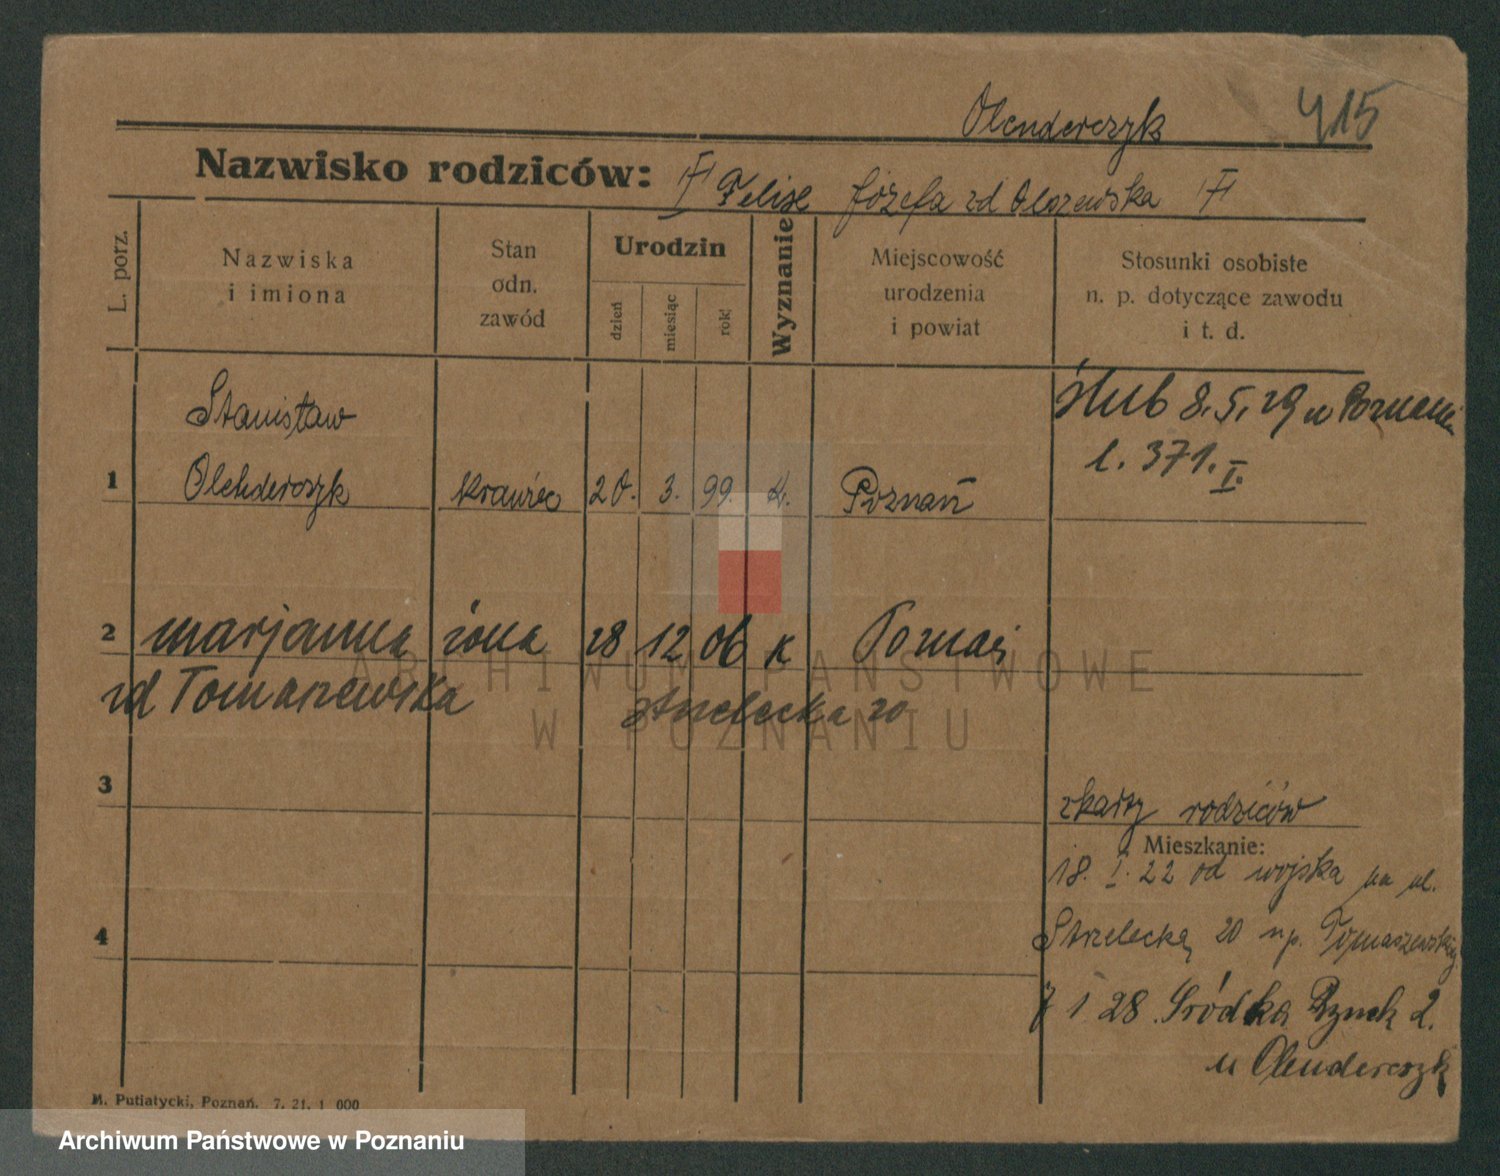 Olenderczyk 415
Nazwisko rodziców: Felix Józefa zd Olszewska
L. porz. Nazwiska i imiona Stan odn. zawód Urodzin dzień miesiąc rok Wyznanie Miejscowość urodzenia i powiat Stosunki osobiste n. p. dotyczące zawodu i t. d.
Stanisław
ślub 8.5.29 w Poznaniu
l. 371. I.
1 Olenderczyk krawiec 20. 3. 99. k. Poznań
2 marjanna żona 28 12 06 k Poznań
zd Tomaszewska strzelecka 20
ARCHIWUM PAŃSTWOWE
W POZNANIU
3
z karty rodziców
Mieszkanie:
18. I. 22 od wojska na ul.
4 Strzelecką 20 n p. Tomaszewskiej
7 1 28 Śródka Rynek 2.
u Olenderczyk
M. Putiatycki, Poznań. 7. 21. 1 000
Archiwum Państwowe w Poznaniu